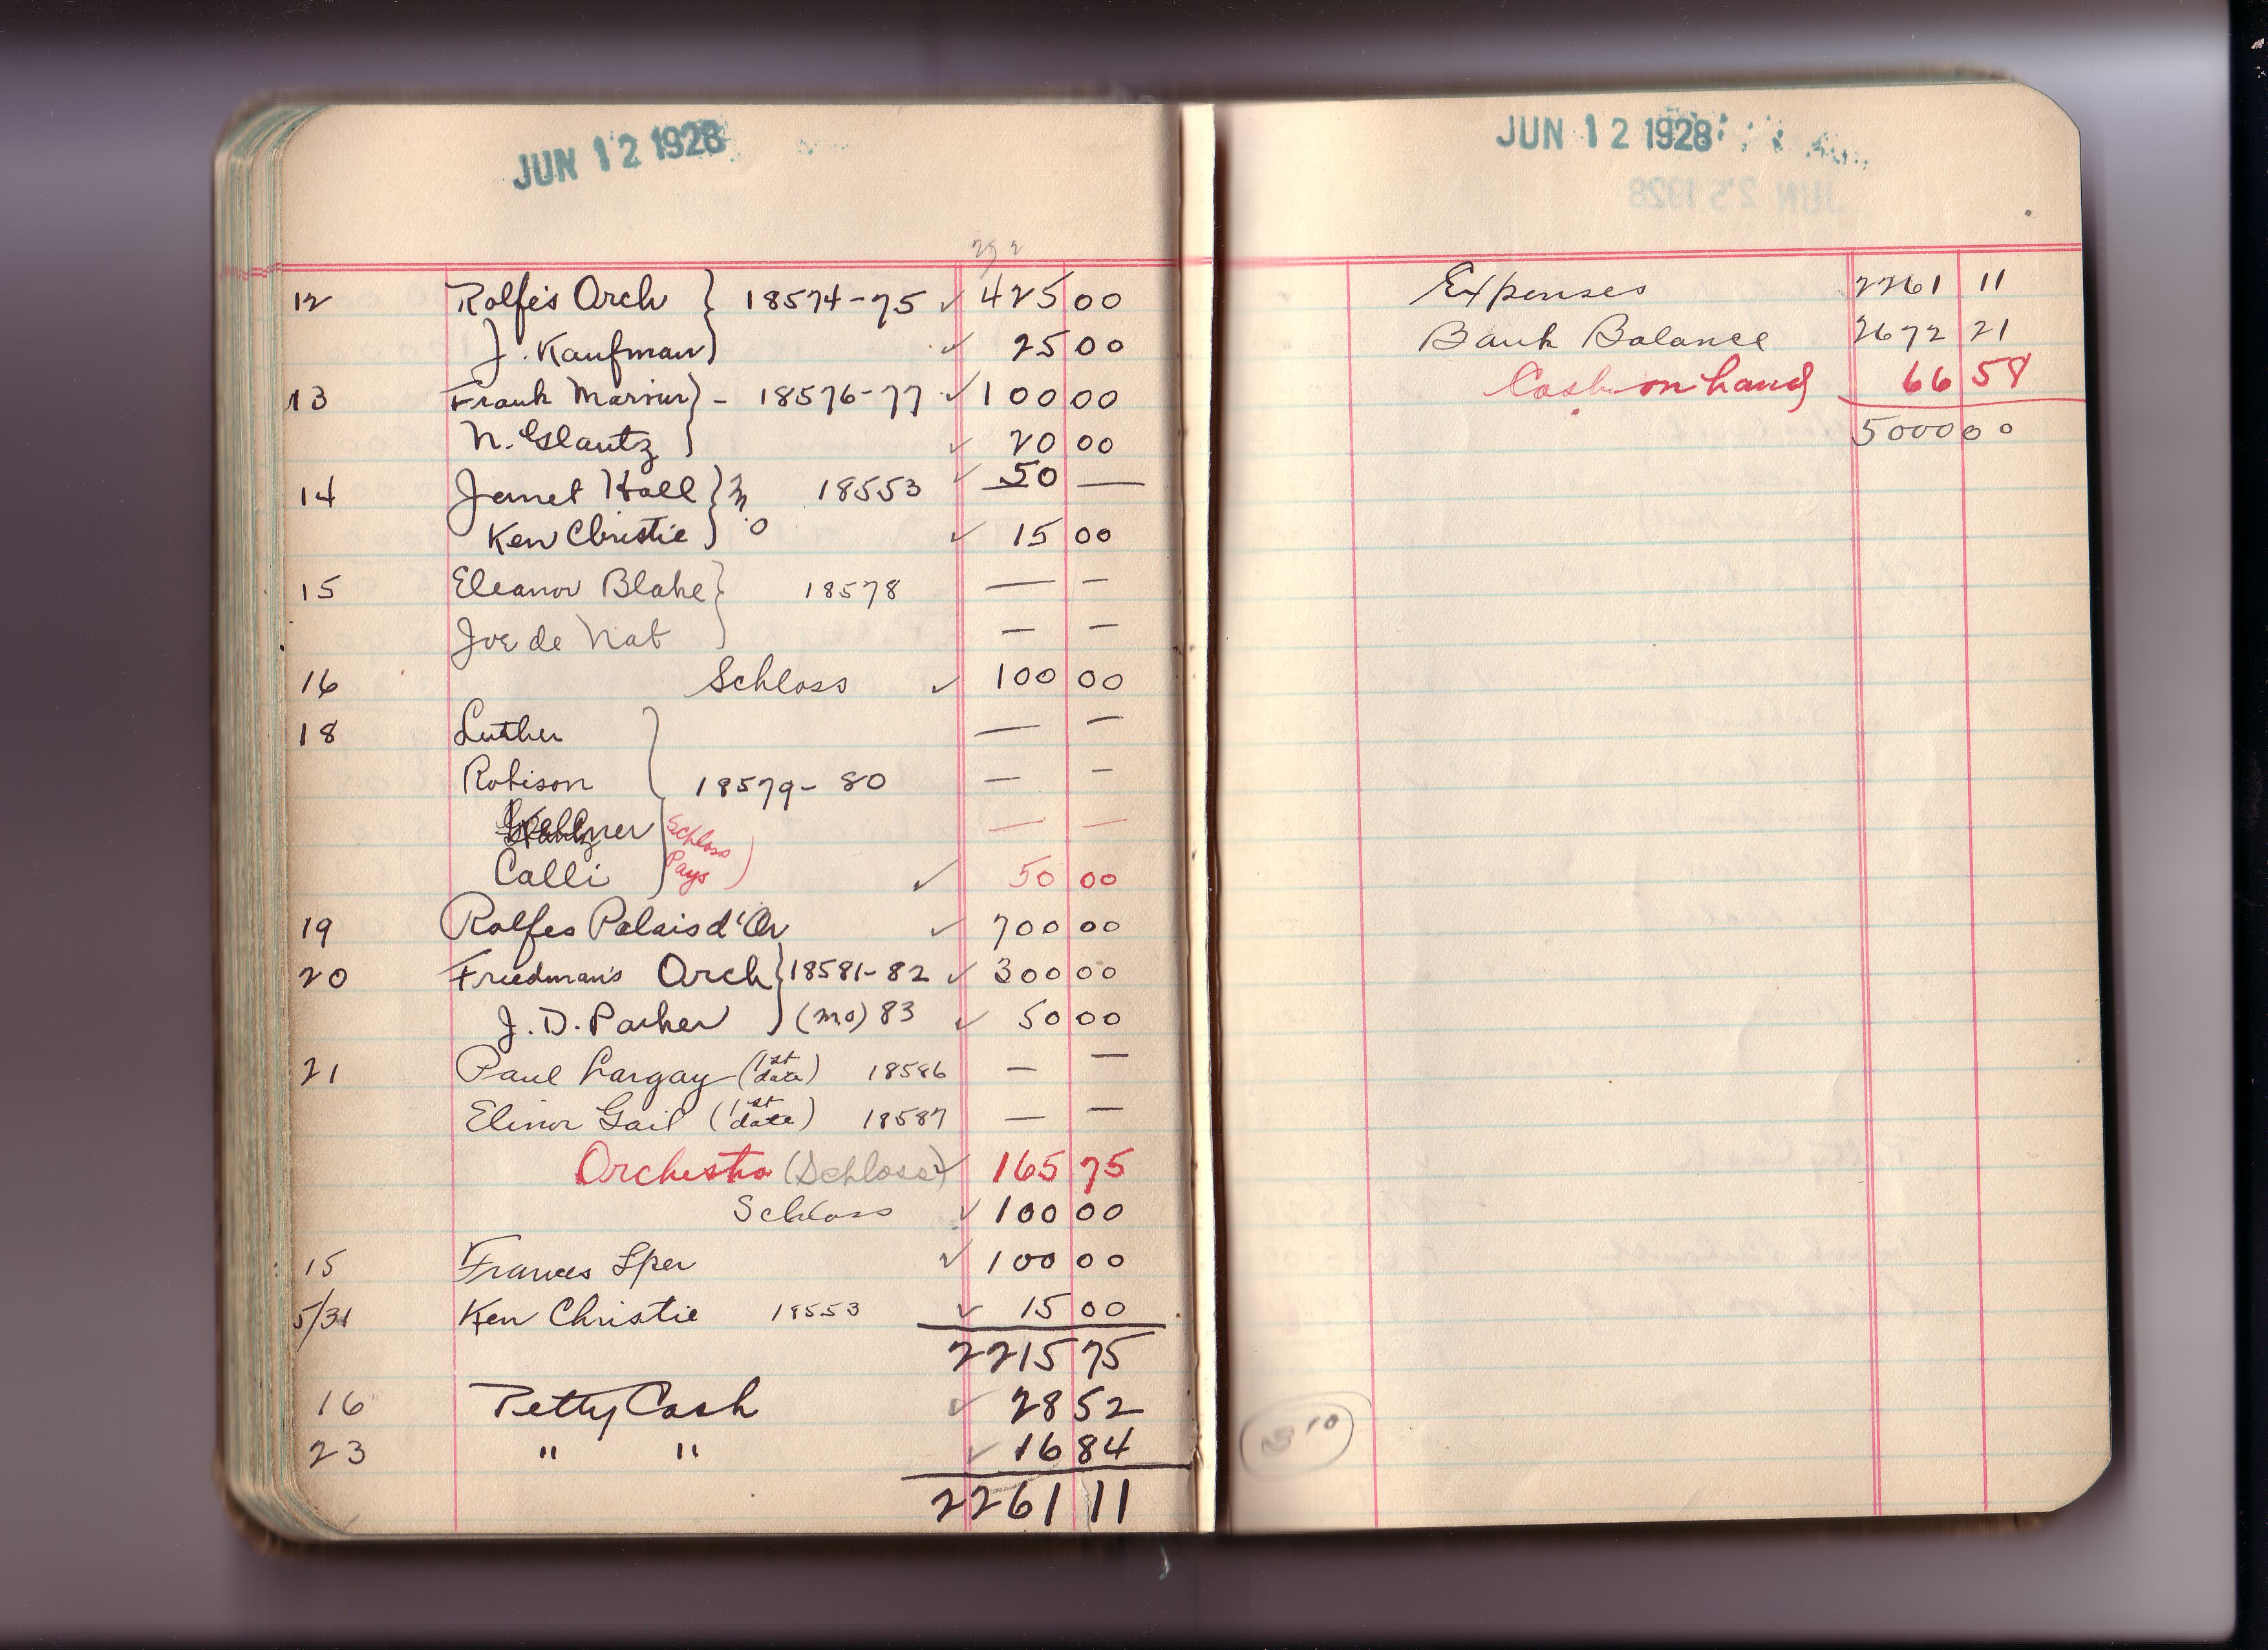 JUN 12 1928
12 Rolfe's Orch } 18574-75 ✓ 425 00
J. Kaufman ✓ 25 00
13 Frank Marvin } - 18576-77 ✓ 100 00
N. Glantz } ✓ 20 00
14 Jamet Hall } 18553 ✓ 50 —
Ken Christie } ✓ 15 00
15 Eleanor Blake } 18578 — —
Joe de Nat — —
16 Schloss ✓ 100 00
18 Luther — —
Robison } 18579-80 — —
Schloss — —
Calli Pays ✓ 50 00
19 Rolfes Palais d'Or ✓ 700 00
20 Friedman's Orch } 18581-82 ✓ 300 00
J. D. Parker } (mo) 83 ✓ 50 00
21 Paul Largay (1st date) 18586 — —
Elinor Gail (1st date) 18587 — —
Orchestra (Schloss) ✓ 165 75
Schloss ✓ 100 00
15 Frances Sper ✓ 100 00
5/31 Ken Christie 18553 ✓ 15 00
2215 75
16 Petty Cash ✓ 28 52
23 " " ✓ 16 84
2261 11
JUN 12 1928
JUN 25 1928
Expenses 2261 11
Bank Balance 2672 21
Cash on hand 66 58
5000 00